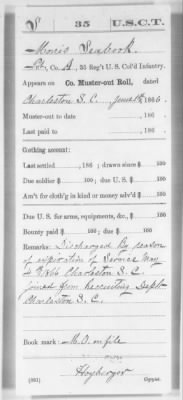 S 35 U.S.C.T.
Morris Seabrook
Pvt, Co. A, 35 Reg't U. S. Col'd Infantry.
Appears on Co. Muster-out Roll, dated
Charleston S. C. June 1st, 1866
Muster-out to date , 186 .
Last paid to , 186 .
Clothing account:
Last settled , 186 ; drawn since $ 100
Due soldier $ 100; due U. S. $ 100
Am't for cloth'g in kind or money adv'd $ 100
Due U. S. for arms, equipments, &c., $ 100
Bounty paid $ 100; due $ 100
Remarks: Discharged By reason
of expiration of Service May
1866 Charleston S. C.
joined from recruiting Sept
Charleston S. C.
Book mark: M. O. in file
(861) Copyist.